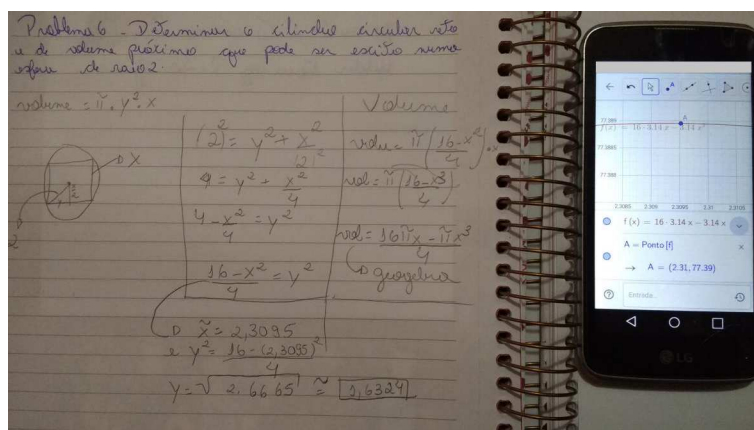 Problema 6 - Determinar o cilindro circular reto
e de volume próximo que pode ser escrito numa
esfera de raio 2.
volume = π . y² . x
D X
2
(2)² = y² + x²/(2)²
4 = y² + x²/4
4 - x²/4 = y²
16 - x²/4 = y²
Volume
volu = π (16-x²/4) . x
vol = π (16-x³/4)
vol = 16πx - πx³/4
geogebra
x̃ = 2,3095
e y² = 16 - (2,3095)²/4
y = √2,6665 ≅ 1,6329
A
77.389
f(x) = 16 · 3.14 x - 3.14 x³
77.3885
77.388
2.3085 2.309 2.3095 2.31 2.3105
f(x) = 16 · 3.14 x - 3.14 x
A = Ponto[f]
→ A = (2.31, 77.39)
Entrada...
LG